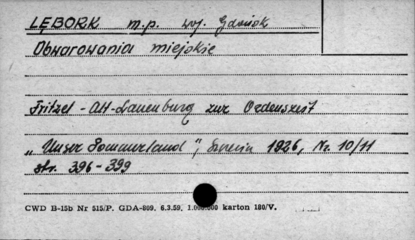 LĘBORK m.p. woj. Gdańsk
Obwarowania miejskie
Fritzel - Alt-Lauenburg zur Ordenszeit
„Unser Pommerland", Szczecin 1926, Nr. 10/11
str. 396-399
CWD B-15b Nr 515/P. GDA-809. 6.3.59. 1.000.000 karton 180/V.